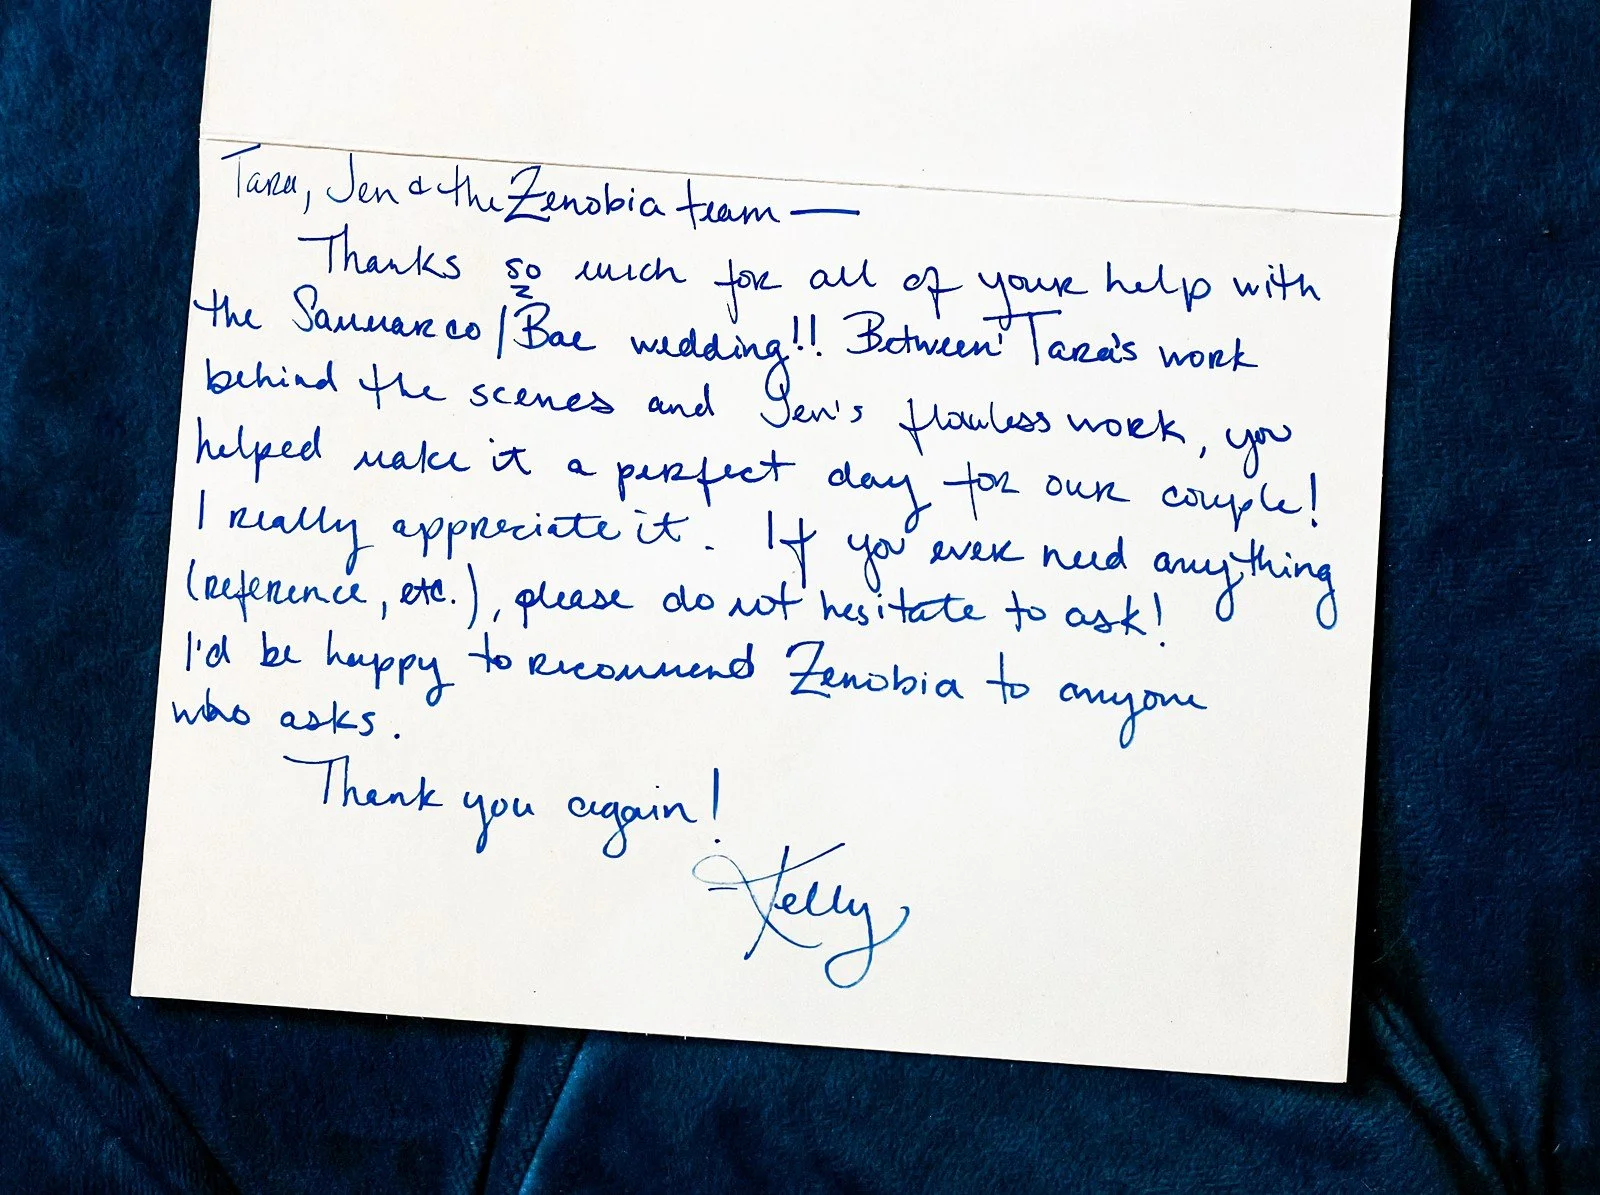 Tara, Jen & the Zenobia team —
Thanks so much for all of your help with
the Sanmarco/Bae wedding!! Between Tara's work
behind the scenes and Jen's flawless work, you
helped make it a perfect day for our couple!
I really appreciate it. If you ever need anything
(reference, etc.), please do not hesitate to ask!
I'd be happy to recommend Zenobia to anyone
who asks.
Thank you again!
Kelly